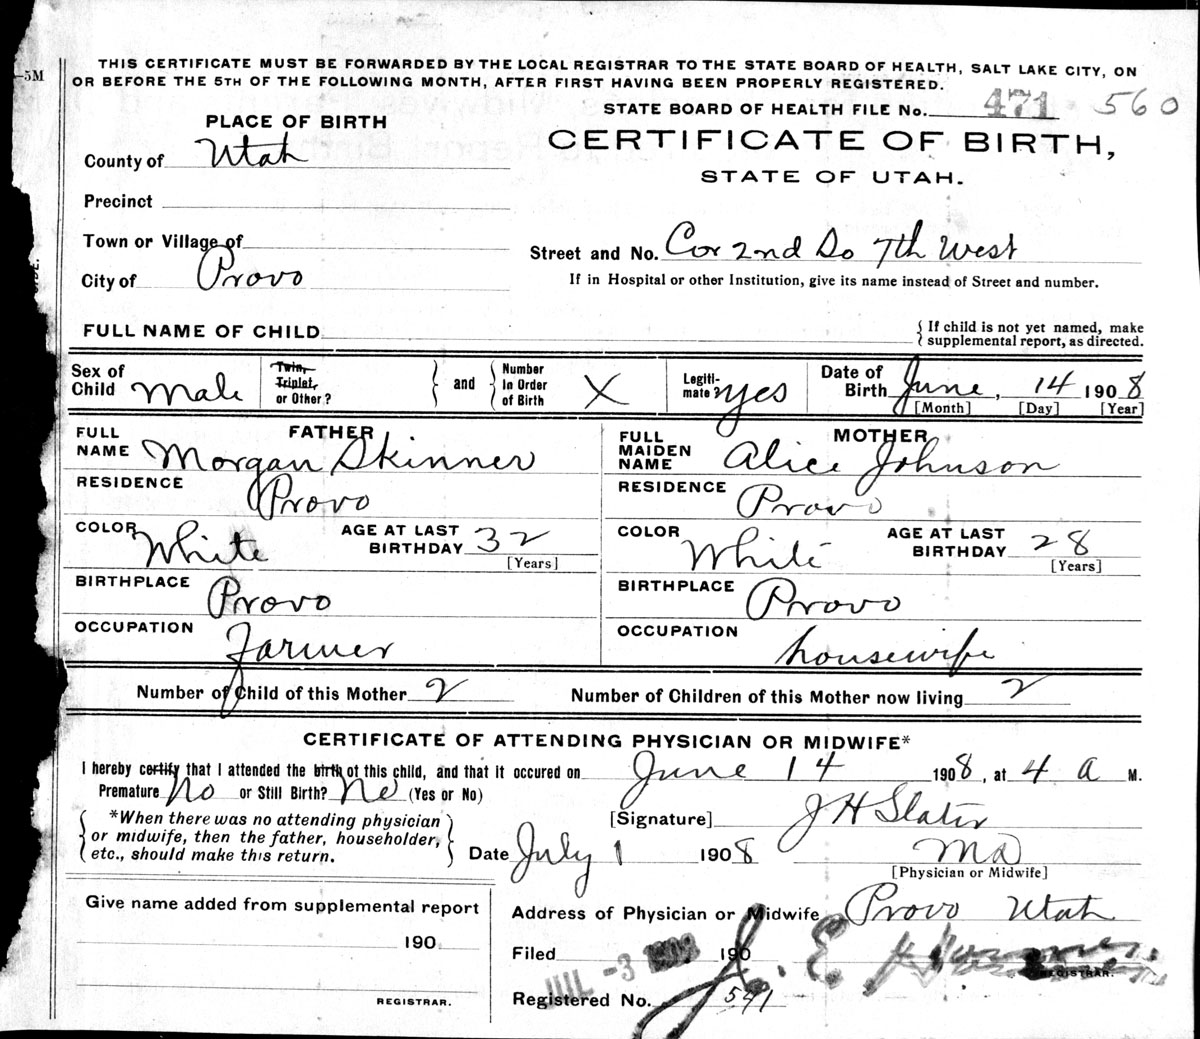 —5M
THIS CERTIFICATE MUST BE FORWARDED BY THE LOCAL REGISTRAR TO THE STATE BOARD OF HEALTH, SALT LAKE CITY, ON
OR BEFORE THE 5TH OF THE FOLLOWING MONTH, AFTER FIRST HAVING BEEN PROPERLY REGISTERED.
STATE BOARD OF HEALTH FILE No. 471 560
PLACE OF BIRTH
CERTIFICATE OF BIRTH,
STATE OF UTAH.
County of Utah
Precinct
Town or Village of
City of Provo
Street and No. Cor 2nd So 7th West
If in Hospital or other Institution, give its name instead of Street and number.
FULL NAME OF CHILD
{ If child is not yet named, make
supplemental report, as directed.
Sex of Child Male
Twin, Triplet, or Other?
and
Number In Order of Birth X
Legiti-mate? yes
Date of Birth June, 14 1908
[Month] [Day] [Year]
FATHER
FULL NAME Morgan Skinner
RESIDENCE Provo
COLOR White
AGE AT LAST BIRTHDAY 32
[Years]
BIRTHPLACE Provo
OCCUPATION Farmer
MOTHER
FULL MAIDEN NAME Alice Johnson
RESIDENCE Provo
COLOR White
AGE AT LAST BIRTHDAY 28
[Years]
BIRTHPLACE Provo
OCCUPATION housewife
Number of Child of this Mother 2
Number of Children of this Mother now living 2
CERTIFICATE OF ATTENDING PHYSICIAN OR MIDWIFE*
I hereby certify that I attended the birth of this child, and that it occured on June 14 1908, at 4 a M.
Premature No or Still Birth? No (Yes or No)
*When there was no attending physician
or midwife, then the father, householder,
etc., should make this return.
[Signature] J H Slater
Date July 1 1908
MD
[Physician or Midwife]
Give name added from supplemental report
190
REGISTRAR.
Address of Physician or Midwife Provo Utah
Filed 190
JUL -3 1908
J. E.
REGISTRAR.
Registered No. 541